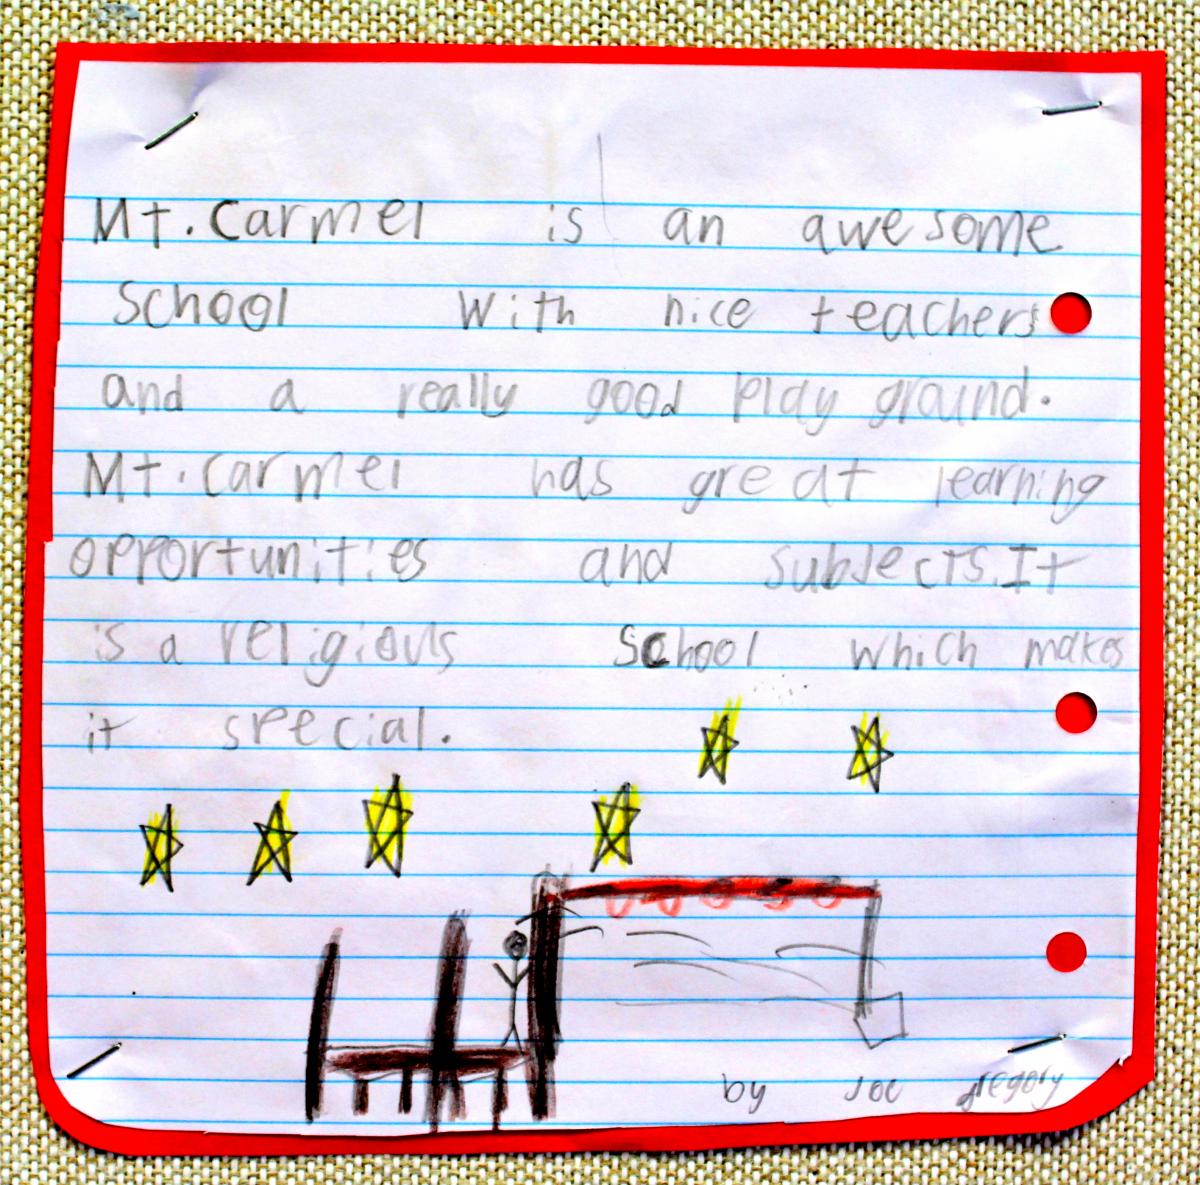 Mt. Carmel is an awesome
School with nice teachers
and a really good play ground.
Mt. Carmel has great learning
opportunities and subjects. It
is a religious School which makes
it special.
by Joe gregory